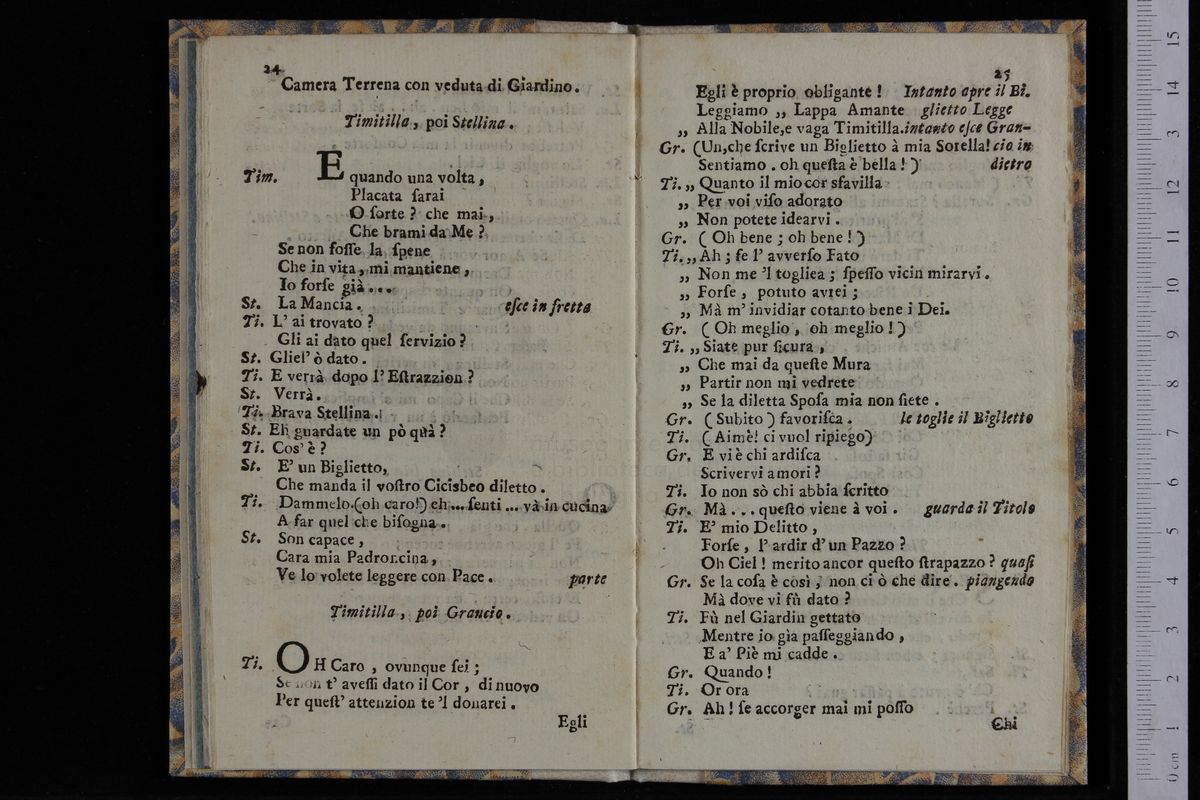 24
Camera Terrena con veduta di Giardino.
Timitilla, poi Stellina.
Tim. E quando una volta,
Placata sarai
O sorte? che mai,
Che brami da Me?
Se non fosse la spene
Che in vita, mi mantiene,
Io forse già...
St. La Mancia. esce in fretta
Ti. L' ai trovato?
Gli ai dato quel servizio?
St. Gliel' ò dato.
Ti. E verrà dopo l' Estrazzion?
St. Verrà.
Ti. Brava Stellina.
St. Eh guardate un pò quà?
Ti. Cos' è?
St. E' un Biglietto,
Che manda il vostro Cicisbeo diletto.
Ti. Dammelo.(oh caro!) eh... senti... và in cucina
A far quel che bisogna.
St. Son capace,
Cara mia Padroncina,
Ve lo volete leggere con Pace. parte
Timitilla, poi Grancio.
Ti. OH Caro, ovunque sei;
Se non t' avessi dato il Cor, di nuovo
Per quest' attenzion te 'l donarei.
Egli
25
Egli è proprio obligante! Intanto apre il Bi.
Leggiamo ,, Lappa Amante glietto Legge
,, Alla Nobile,e vaga Timitilla.intanto esce Gran-
Gr. (Un,che scrive un Biglietto à mia Sorella! cio in
Sentiamo. oh questa è bella!) dietro
Ti. ,, Quanto il mio cor sfavilla
,, Per voi viso adorato
,, Non potete idearvi.
Gr. (Oh bene; oh bene!)
Ti. ,, Ah; se l' avverso Fato
,, Non me 'l togliea; spesso vicin mirarvi.
,, Forse, potuto avrei;
,, Mà m' invidiar cotanto bene i Dei.
Gr. (Oh meglio, oh meglio!)
Ti. ,, Siate pur sicura,
,, Che mai da queste Mura
,, Partir non mi vedrete
,, Se la diletta Sposa mia non siete.
Gr. (Subito) favorisca. le toglie il Biglietto
Ti. (Aimè! ci vuol ripiego)
Gr. E vi è chi ardisca
Scrivervi amori?
Ti. Io non sò chi abbia scritto
Gr. Mà... questo viene à voi. guarda il Titolo
Ti. E' mio Delitto,
Forse, l' ardir d' un Pazzo?
Oh Ciel! merito ancor questo strapazzo? quasi
Gr. Se la cosa è così, non ci ò che dire. piangendo
Mà dove vi fù dato?
Ti. Fù nel Giardin gettato
Mentre io gìa passeggiando,
E a' Piè mi cadde.
Gr. Quando!
Ti. Or ora
Gr. Ah! se accorger mai mi posso
Chi
0 cm 1 2 3 4 5 6 7 8 9 10 11 12 13 14 15